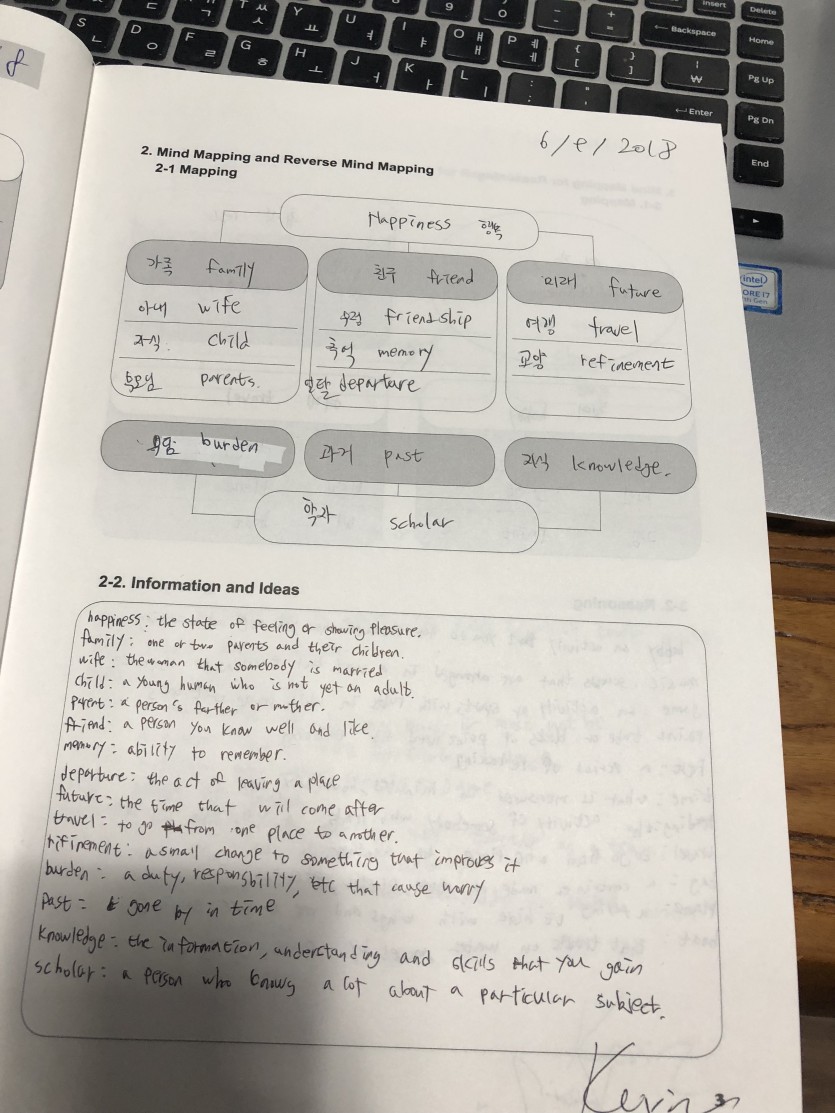 6/8/2018
2. Mind Mapping and Reverse Mind Mapping
2-1 Mapping
Happiness 행복
가족 family
친구 friend
미래 future
아내 wife
우정 friendship
여행 travel
자식. child
추억 memory
교양 refinement
부모님 parents.
일탈 departure
burden
과거 past
지식 knowledge.
학자 scholar
2-2. Information and Ideas
happiness: the state of feeling or showing pleasure.
family: one or two parents and their children.
wife: the woman that somebody is married
child: a young human who is not yet an adult.
parent: a person's farther or mother.
friend: a person you know well and like.
memory: ability to remember.
departure: the act of leaving a place
future: the time that will come after
travel: to go from one place to another.
rifinement: a small change to something that improves it
burden: a duty, responsbility, etc that cause worry
past: gone by in time
knowledge: the information, understanding and skills that you gain
scholar: a person who knows a lot about a particular subject.
Kevin
3
Insert
Delete
Backspace
Home
Pg Up
Enter
Pg Dn
End
intel
CORE i7